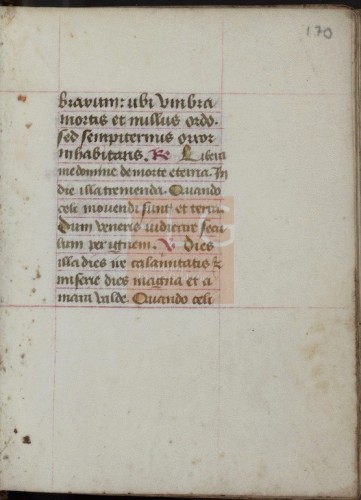 170
brarum: ubi vmbra
mortis et nullus ordo.
sed sempiternus orror
inhabitans. Re Libera
me domine de morte eterna. In
die illa tremenda. Quando
celi mouendi sunt et terra.
Dum veneris iudicare secu
lum per ignem. V. Dies
illa dies ire calamitatis &
miserie dies magna et a
mara valde. Quando celi